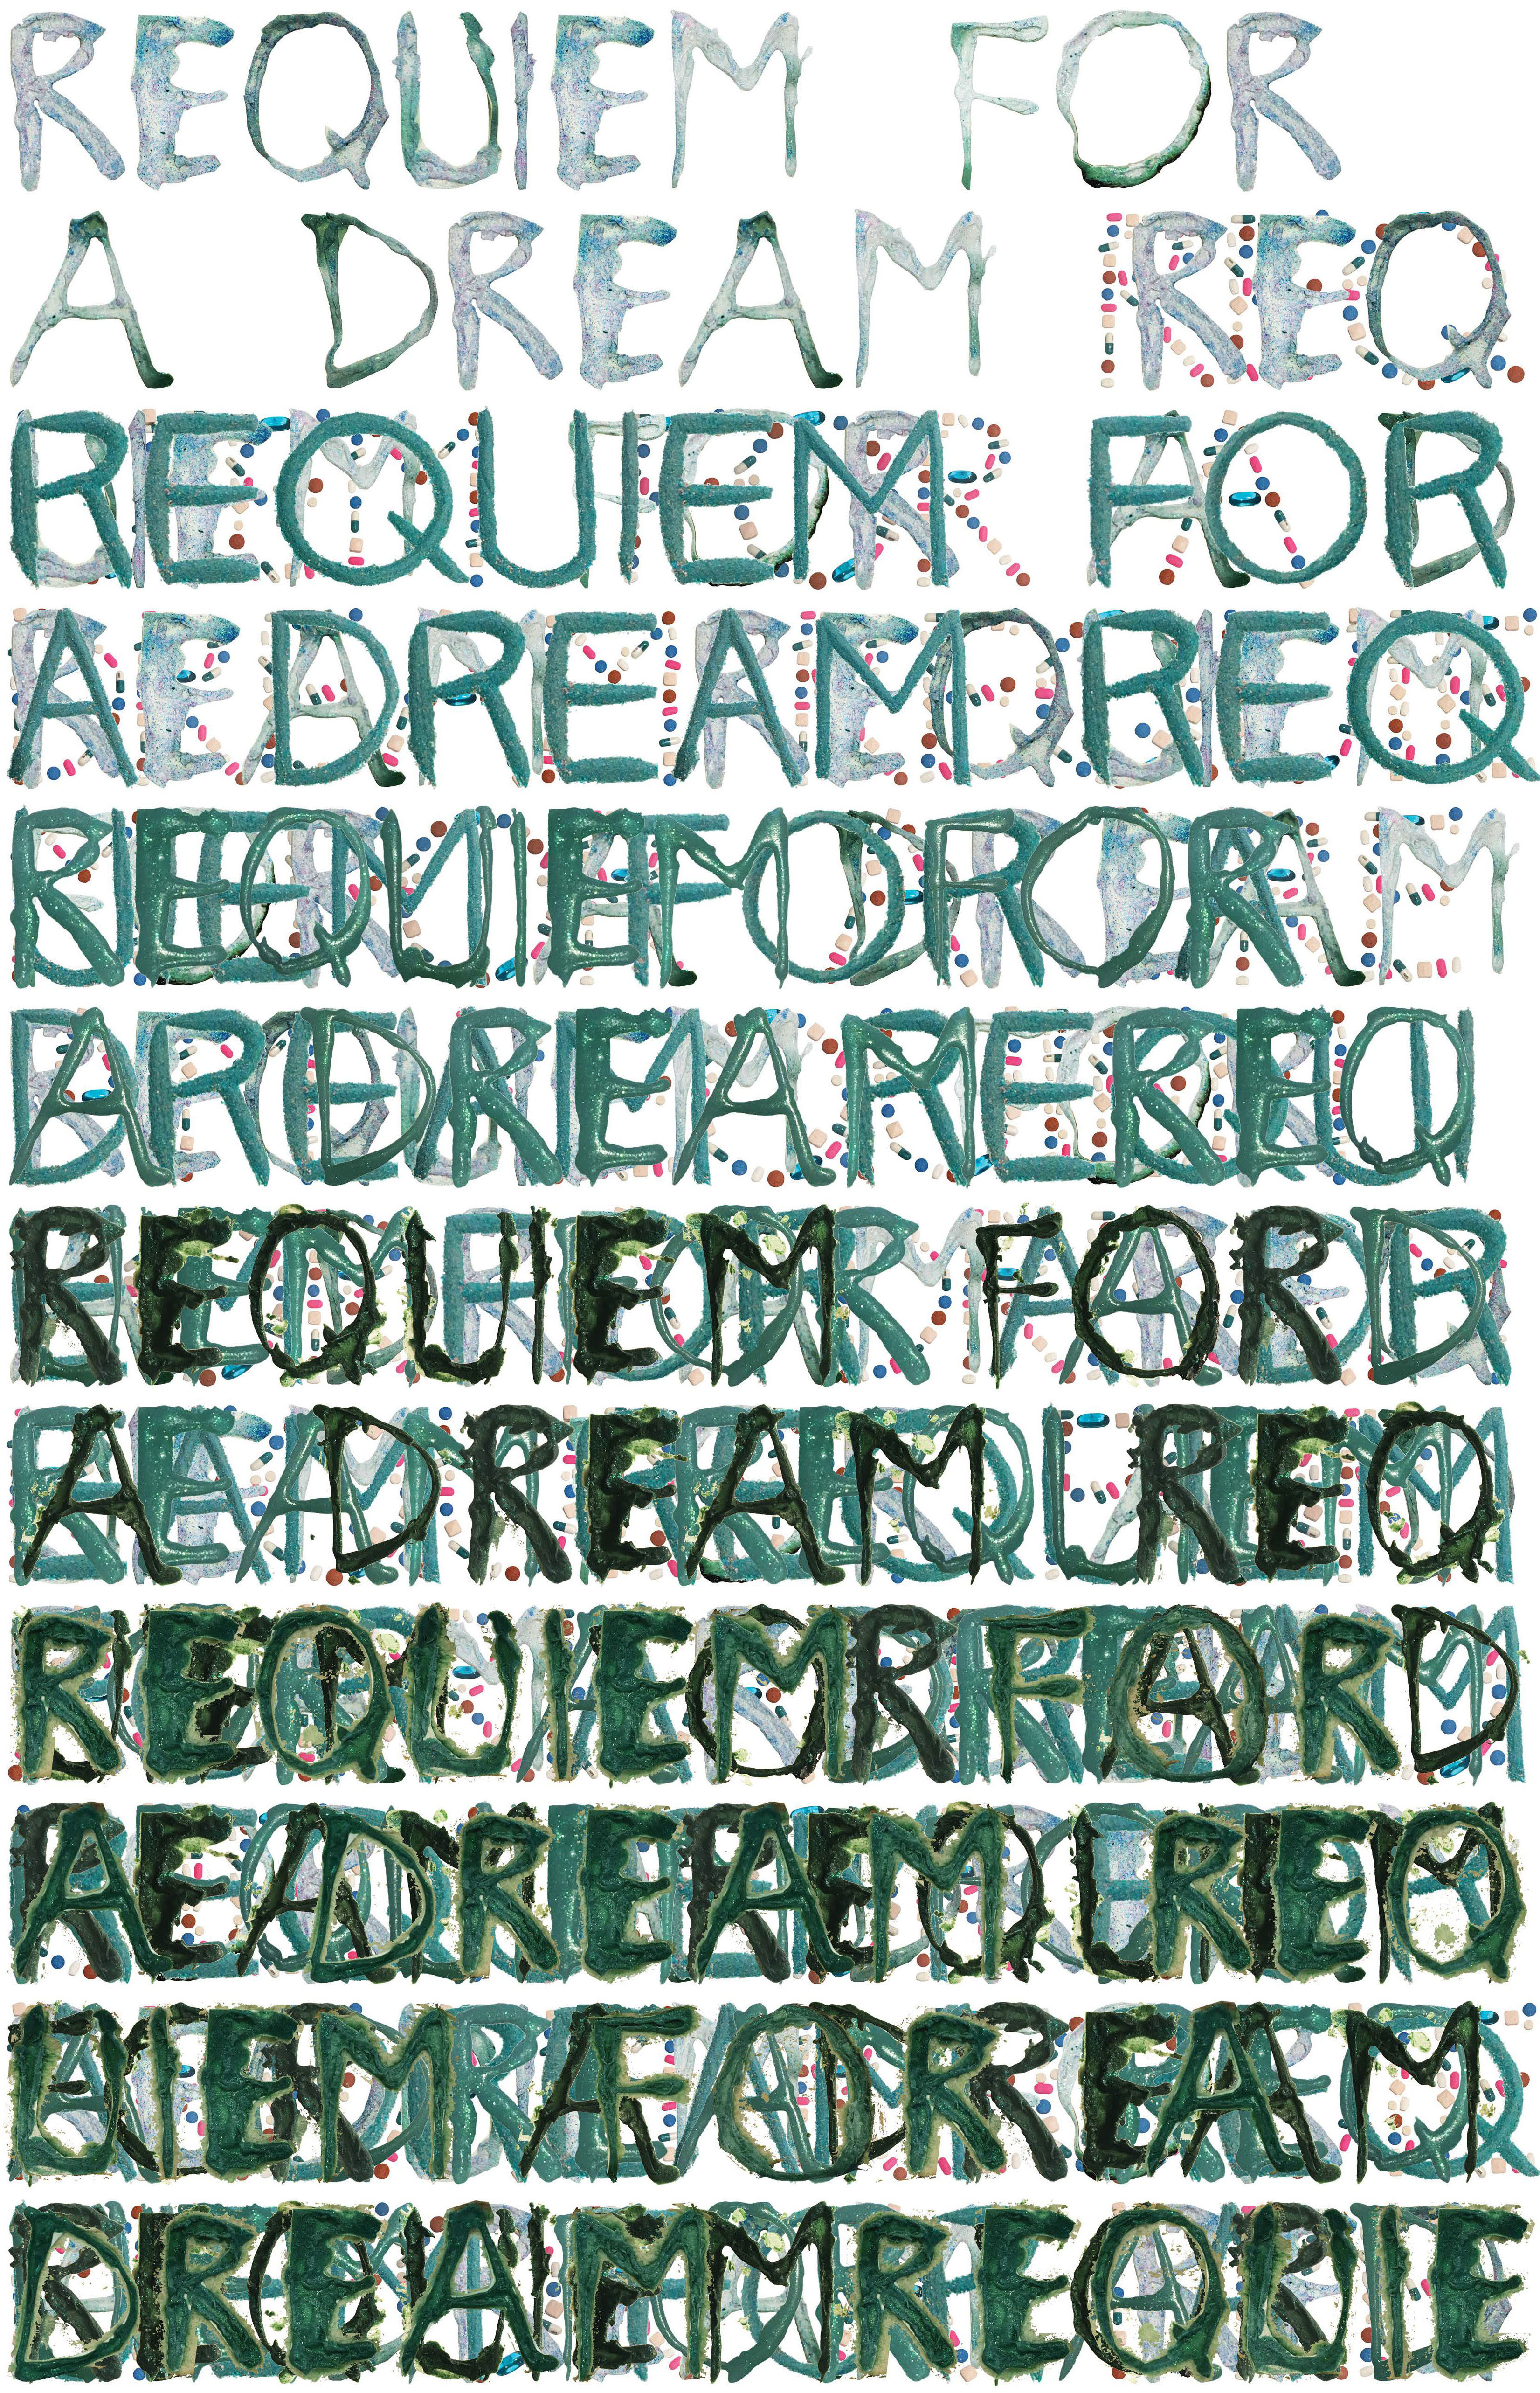 REQUIEM FOR
A DREAM REQ
REQUIEM FOR
A DREAM REQ
REQUIEM FOR
A DREAM REQ
REQUIEM FOR
A DREAM REQ
REQUIEM FOR
A DREAM REQ
UIEM FOR A
DREAM REQUIE